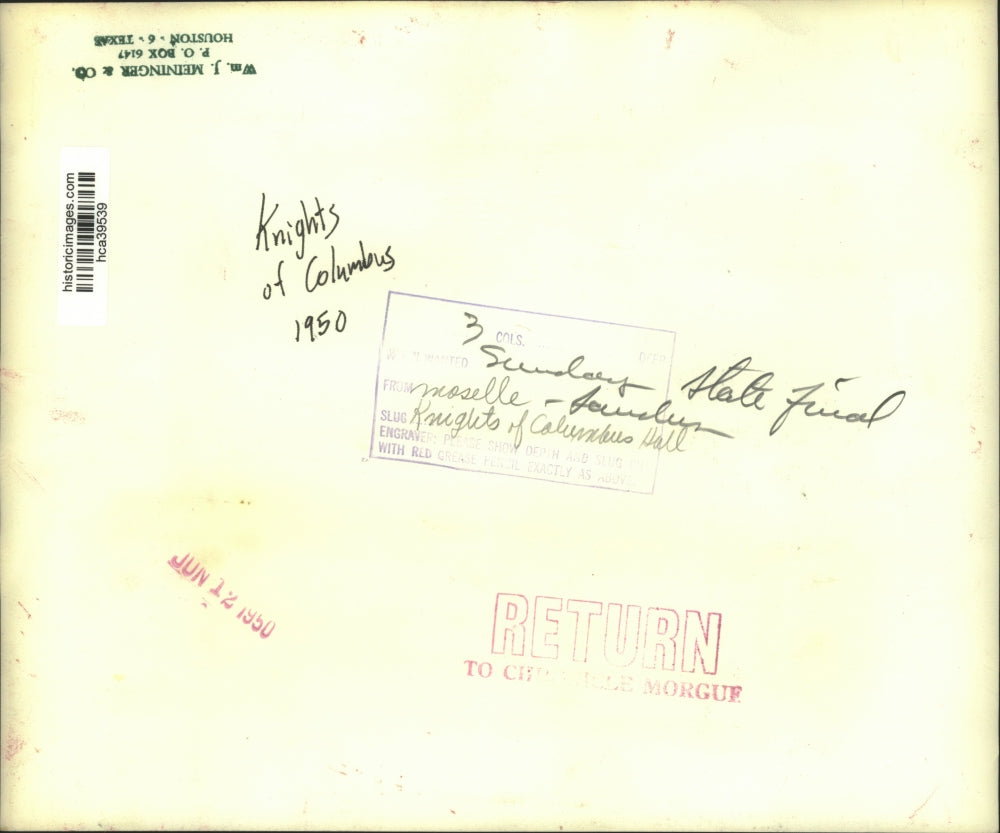 Wm. J. MEININGER & CO.
P. O. BOX 6147
HOUSTON - 6 - TEXAS
historicimages.com
hca39539
Knights
of Columbus
1950
3 COLS. DEEP
WHEN WANTED Sunday State Final
FROM moselle -
SLUG Knights of Columbus Hall
ENGRAVER: PLEASE SHOW DEPTH AND SLUG
WITH RED GREASE PENCIL EXACTLY AS ABOVE.
JUN 12 1950
RETURN
TO CHRONICLE MORGUE